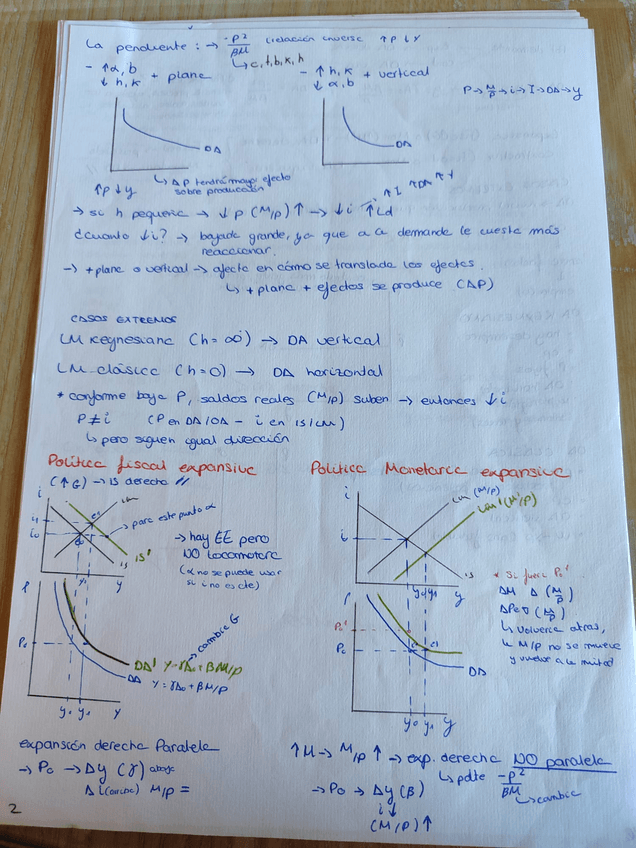 La pendiente : → -P²/βM (relación inversa ↑P ↓Y
↳ c, t, b, k, h
- ↑α, b
↓ h, k + plana
- ↑ h, k + vertical
↓ α, b
P → M/P → i → I → DA → y
DA
DA
↳ ΔP tendrá mayor efecto
sobre producción
↑P ↓y
→ si h pequeña → ↓ P (M/P) ↑ → ↓ i ↑ Ld ↑ I ↑ DA ↑ Y
¿cuanto ↓i? → bajada grande, ya que a la demanda le cuesta más
reaccionar.
→ + plana o vertical → afecta en cómo se translada los efectos.
↳ + plana + efectos se produce (ΔP)
CASOS EXTREMOS
LM Keynesiana (h = ∞) → DA vertical
LM clásica (h = 0) → DA horizontal
* conforme baja P, saldos reales (M/P) suben → entonces ↓ i
P ≠ i (P en DA/OA - i en IS/LM)
↳ pero siguen igual dirección
Política fiscal expansiva
(↑G) → IS derecha //
i
LM
e1
→ para este punto α
i1
i0
IS
IS'
y1
y
→ hay EE pero
NO locomotora
(α no se puede usar
si i no es cte)
P
P0
→ cambia G
DA' Y = γA0 + βM/P
DA Y = γA0 + βM/P
y0 y1 y
expansión derecha Paralela
→ P0 → Δy (γ) abajo
Δ i M/P =
Política Monetaria expansiva
i
LM (M/P)
LM' (M'/P)
i
IS
y0 y1 y
* Si fuera P0'
ΔM Δ (M/P)
ΔP0 ∇ (M/P)
↳ volvería atras,
↳ M/P no se mueve
y vuelve a la mitad
P
P0'
P0
e1
DA
y0 y1 y
↑M → M/P ↑ → exp. derecha NO paralela
↳ pdte -P²/βM
↳ cambia
→ P0 → Δy (β)
i ↓
(M/P) ↑
2